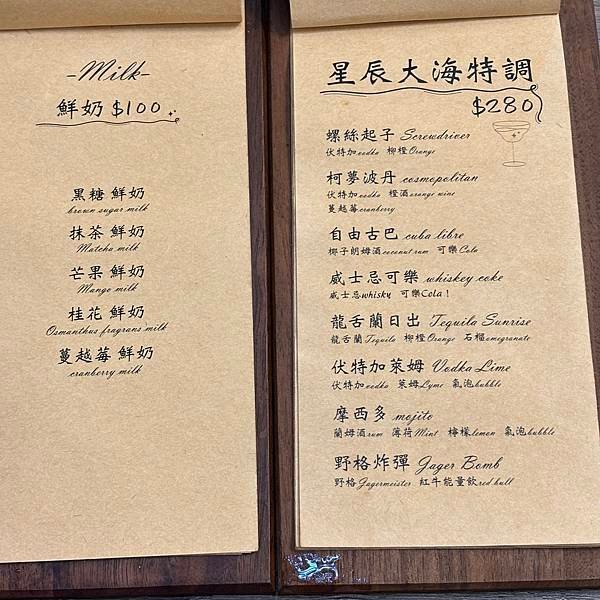 -Milk-
鮮奶 $100
黑糖 鮮奶
brown sugar milk
抹茶 鮮奶
Matcha milk
芒果 鮮奶
Mango milk
桂花 鮮奶
Osmanthus fragrans milk
蔓越莓 鮮奶
cranberry milk
星辰大海特調
$280
螺絲起子 Screwdriver
伏特加vodka 柳橙Orange
柯夢波丹 cosmopolitan
伏特加vodka 橙酒orange wine
蔓越莓cranberry
自由古巴 cuba libre
椰子朗姆酒coconut rum 可樂Cola
威士忌可樂 whiskey coke
威士忌whisky 可樂Cola!
龍舌蘭日出 Tequila Sunrise
龍舌蘭Tequila 柳橙Orange 石榴omegranate
伏特加萊姆 Vodka Lime
伏特加vodka 萊姆Lyme 氣泡bubble
摩西多 mojito
蘭姆酒rum 薄荷Mint 檸檬lemon 氣泡bubble
野格炸彈 Jager Bomb
野格Jagermeister 紅牛能量飲red bull